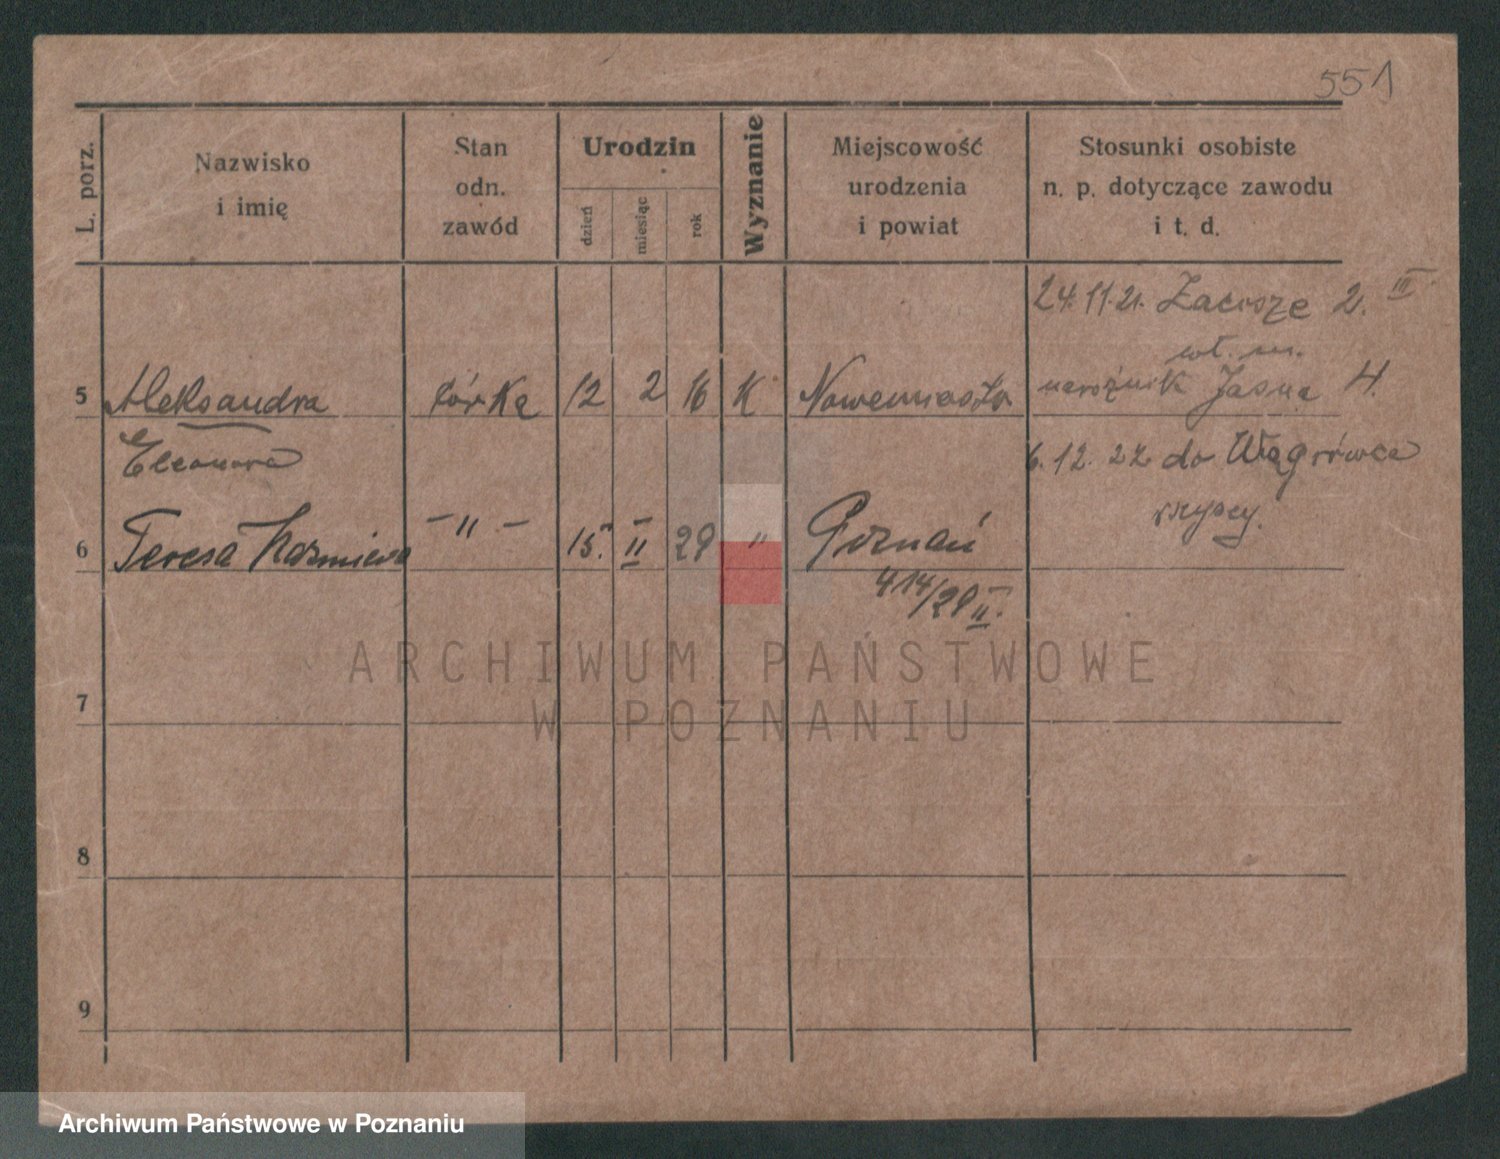 551
L. porz.
Nazwisko
i imię
Stan
odn.
zawód
Urodzin
dzień
miesiąc
rok
Wyznanie
Miejscowość
urodzenia
i powiat
Stosunki osobiste
n. p. dotyczące zawodu
i t. d.
24.11.21. Zacisze 2. III.
wł. m.
narożnik Jasna 4.
5 Aleksandra córka 12 2 16 K Nowemiasto
Eleonora
6.12.22 do Wągrówca
6 Teresa Kazmiera -"- 15. II 29 " Poznań
414/29 II.
7
8
9
ARCHIWUM PAŃSTWOWE
W POZNANIU
Archiwum Państwowe w Poznaniu